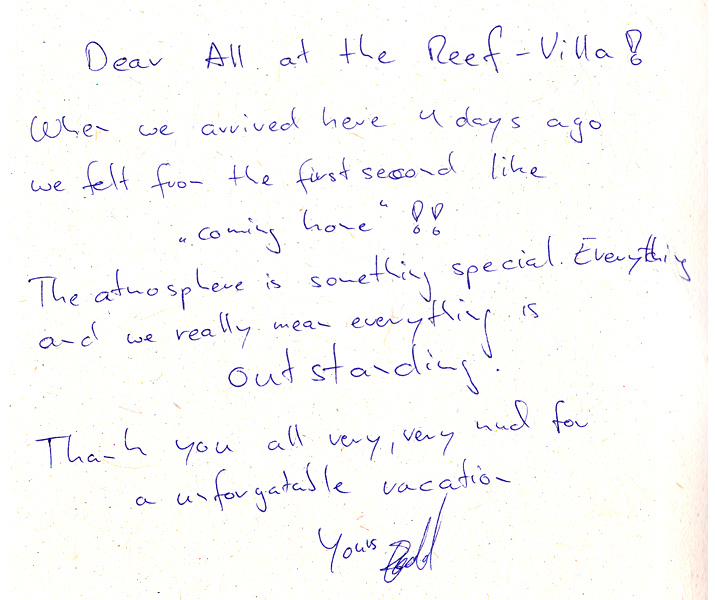 Dear All at the Reef-Villa!
When we arrived here 4 days ago
we felt from the first second like
„coming home“ !!
The atmosphere is something special. Everything
and we really mean everything is
outstanding.
Thank you all very, very much for
a unforgatable vacation
Yours